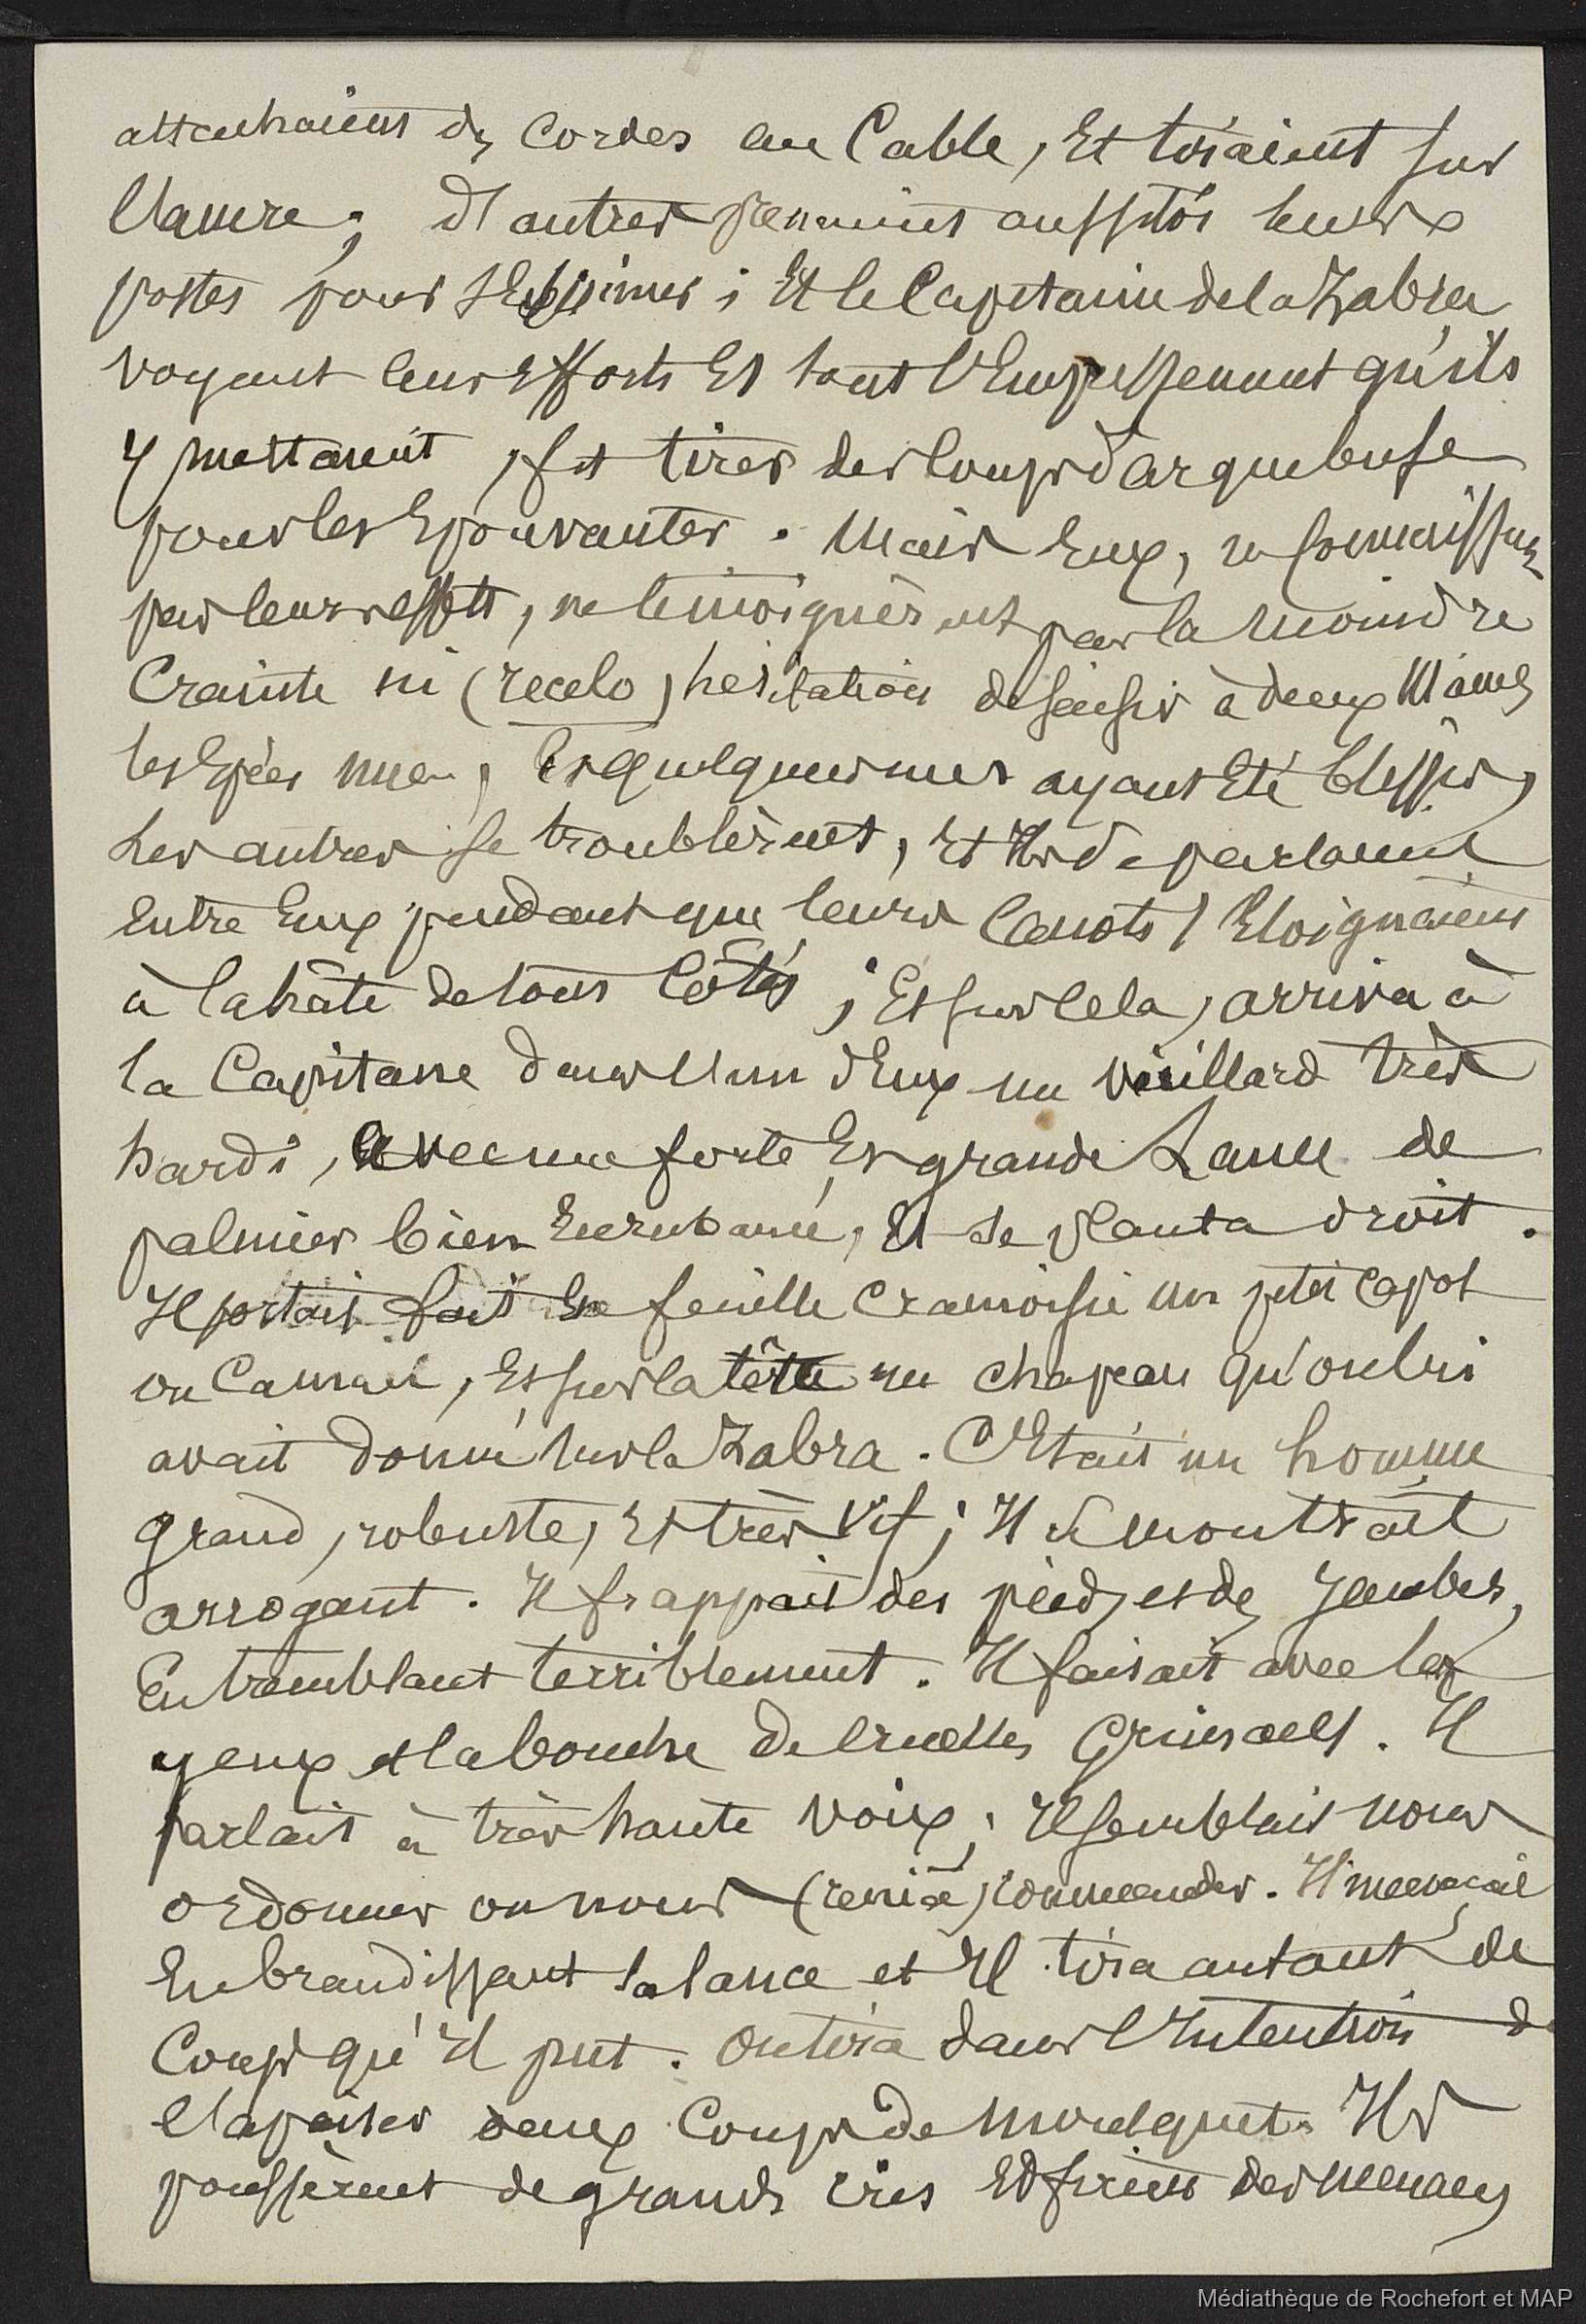 attachaient des cordes au Cable, Et tiraient sur
l'ancre; d'autres prenaient aussitôt leurs
postes pour s'Escrimer; Et le Capitaine de la Zabra
voyant leurs Efforts Et tout l'Empressement qu'ils
y mettaient, fit tirer des Coups d'arquebuse
pour les Epouvanter. Mais Eux, ne connaissant
pas leurs effets, ne témoignèrent pas la moindre
Crainte ni (recelo) hésitation de saisir à deux Mains
les Epées nues, Et quelques uns ayant Eté blessés,
Les autres se troublèrent, Et Ils se parlaient
Entre Eux pendant que leurs Canots s'Eloignaient
à la hâte de tous Côtés; Et sur cela, arriva à
la Capitane dans l'un d'Eux un vieillard très
hardi, avec une forte Et grande Lance de
palmier bien Enrubanné, Et se planta droit.
Il portait fait En feuille Cramoisie un petit Capot
ou Camail, Et sur la tête un chapeau qu'on lui
avait donné sur la Zabra. C'Etait un homme
grand, robuste, Et très vif; Il se montrait
arrogant. Il frappait des pieds et des Jambes,
En tremblant terriblement. Il faisait avec les
yeux et la bouche de cruelles Grimaces. Il
parlait à très haute voix; Il semblait nous
ordonner ou nous (renia) commander. Il menaçait
En brandissant sa lance et Il tira autant de
Coups qu'Il put. On tira dans l'Intention de
l'apaiser deux Coups de Mousquet. Ils
poussèrent de grands cris Et firent des menaces